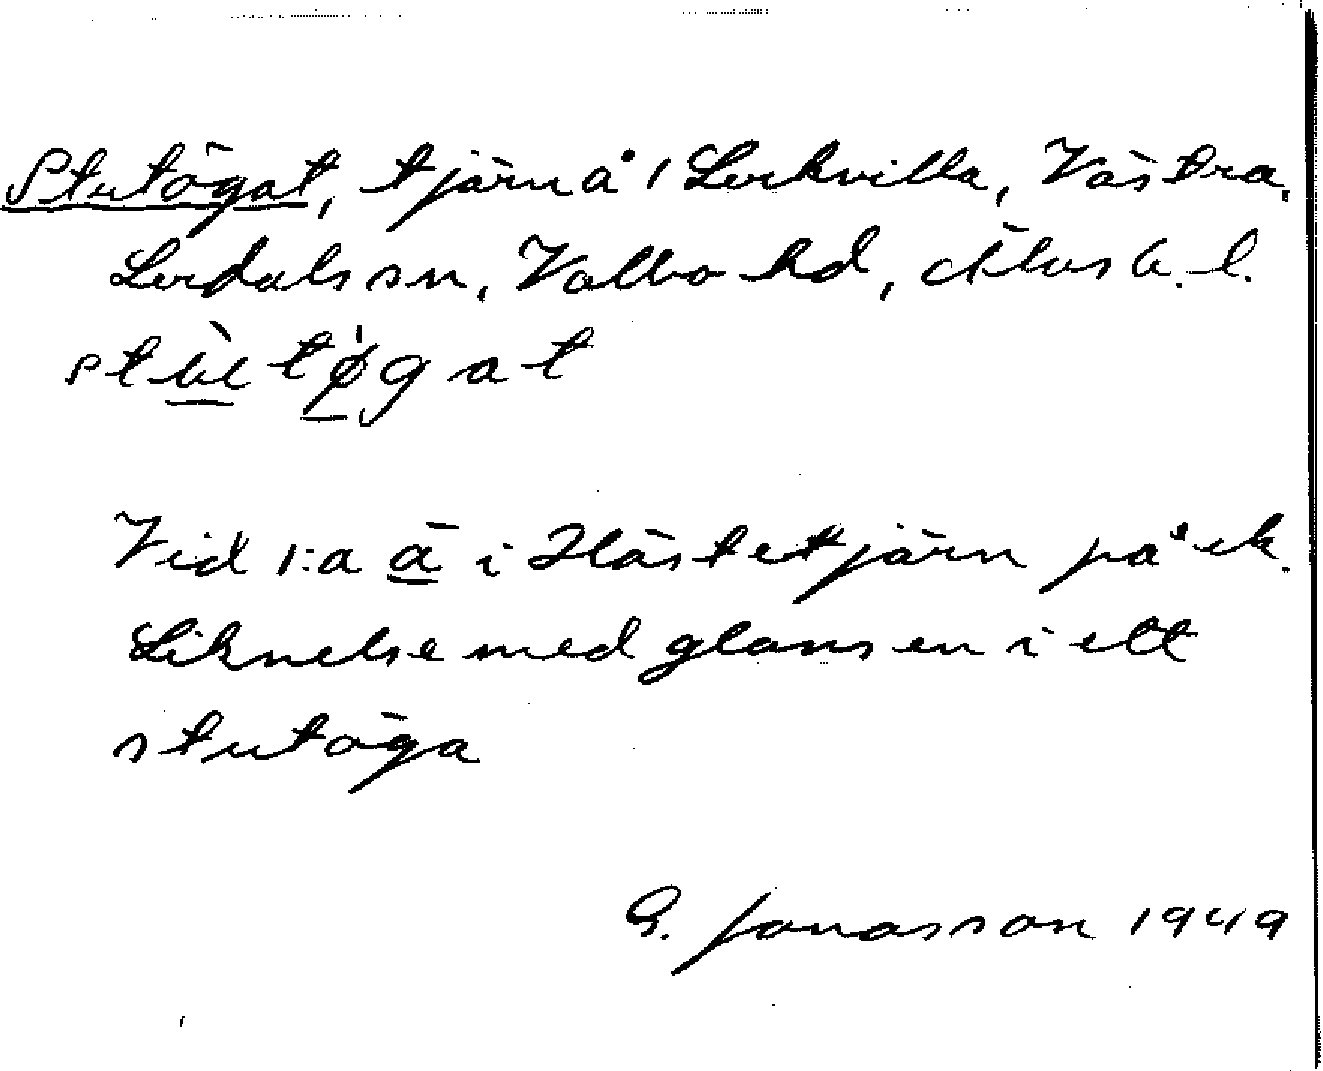 Stutögat, tjärn å 1 Lerkvilla, Västra
Lerdals sn, Valbo hd, Älvsb. l.
stùtøgat
Vid 1:a ä i Hästetjärn på ek.
Liknelse med glansen i ett
stutöga
G. Jonasson 1949